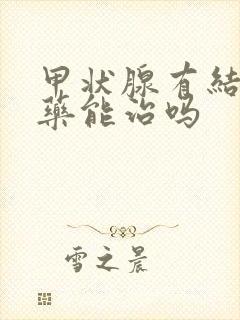 甲状腺有結
藥能治吗
雪之晨